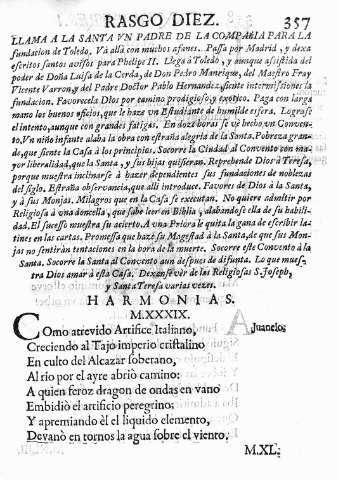 RASGO DIEZ. 357
LLAMA A LA SANTA VN PADRE DE LA COMPAÑIA PARA LA
fundacion de Toledo. Và allà con muchos afanes. Passa por Madrid, y dexa
escritos santos avisos para Phelipe II. Llega à Toledo, y aunque assistida del
poder de Doña Luisa de la Cerda, de Don Pedro Manrique, del Maestro Fray
Vicente Varron, y del Padre Doctor Pablo Hernandez, siente intermissiones la
fundacion. Favorecela Dios por camino prodigioso, y exotico. Paga con larga
mano los buenos oficios, que le haze vn Estudiante de humilde esfera. Lograse
el intento, aunque con grandes fatigas. En doze horas se vè hecho, vn Conven-
to. Vn niño infante alaba la obra con estraña alegria de la Santa. Pobreza gran-
de, que siente la Casa à los principios. Socorre la Ciudad al Convento con ma-
yor liberalidad, que la Santa, y sus hijas quisieran. Reprehende Dios à Teresa,
porque muestra inclinarse à hazer dependientes sus fundaciones de noblezas
del siglo. Estraña observancia, que alli introduce. Favores de Dios à la Santa,
y à sus Monjas. Milagros que en la Casa se executan. No quiere admitir por
Religiosa à vna doncella, que sabe leer en Biblia, alabandose ella de su habili-
dad. El sucesso muestra su acierto. A vna Priora le quita la gana de escribir la-
tines en las cartas. Promessa que haze su Magestad à la Santa, de que sus Mon-
jas no sentiràn tentaciones en la hora de la muerte. Socorre este Convento à la
Santa. Socorre la Santa al Convento aun despues de difunta. Lo que mues-
tra Dios amar à esta Casa. Dexanse vèr de las Religiosas S. Joseph,
y Santa Teresa varias vezes.
HARMONIAS.
M.XXXIX.
Como atrevido Artifice Italiano, Juanelo.
Creciendo al Tajo imperio cristalino
En culto del Alcazar soberano,
Al rio por el ayre abriò camino:
A quien feroz dragon de ondas en vano
Embidiò el artificio peregrino;
Y apremiando èl el liquido elemento,
Devanò en tornos la agua sobre el viento.
M.XL.